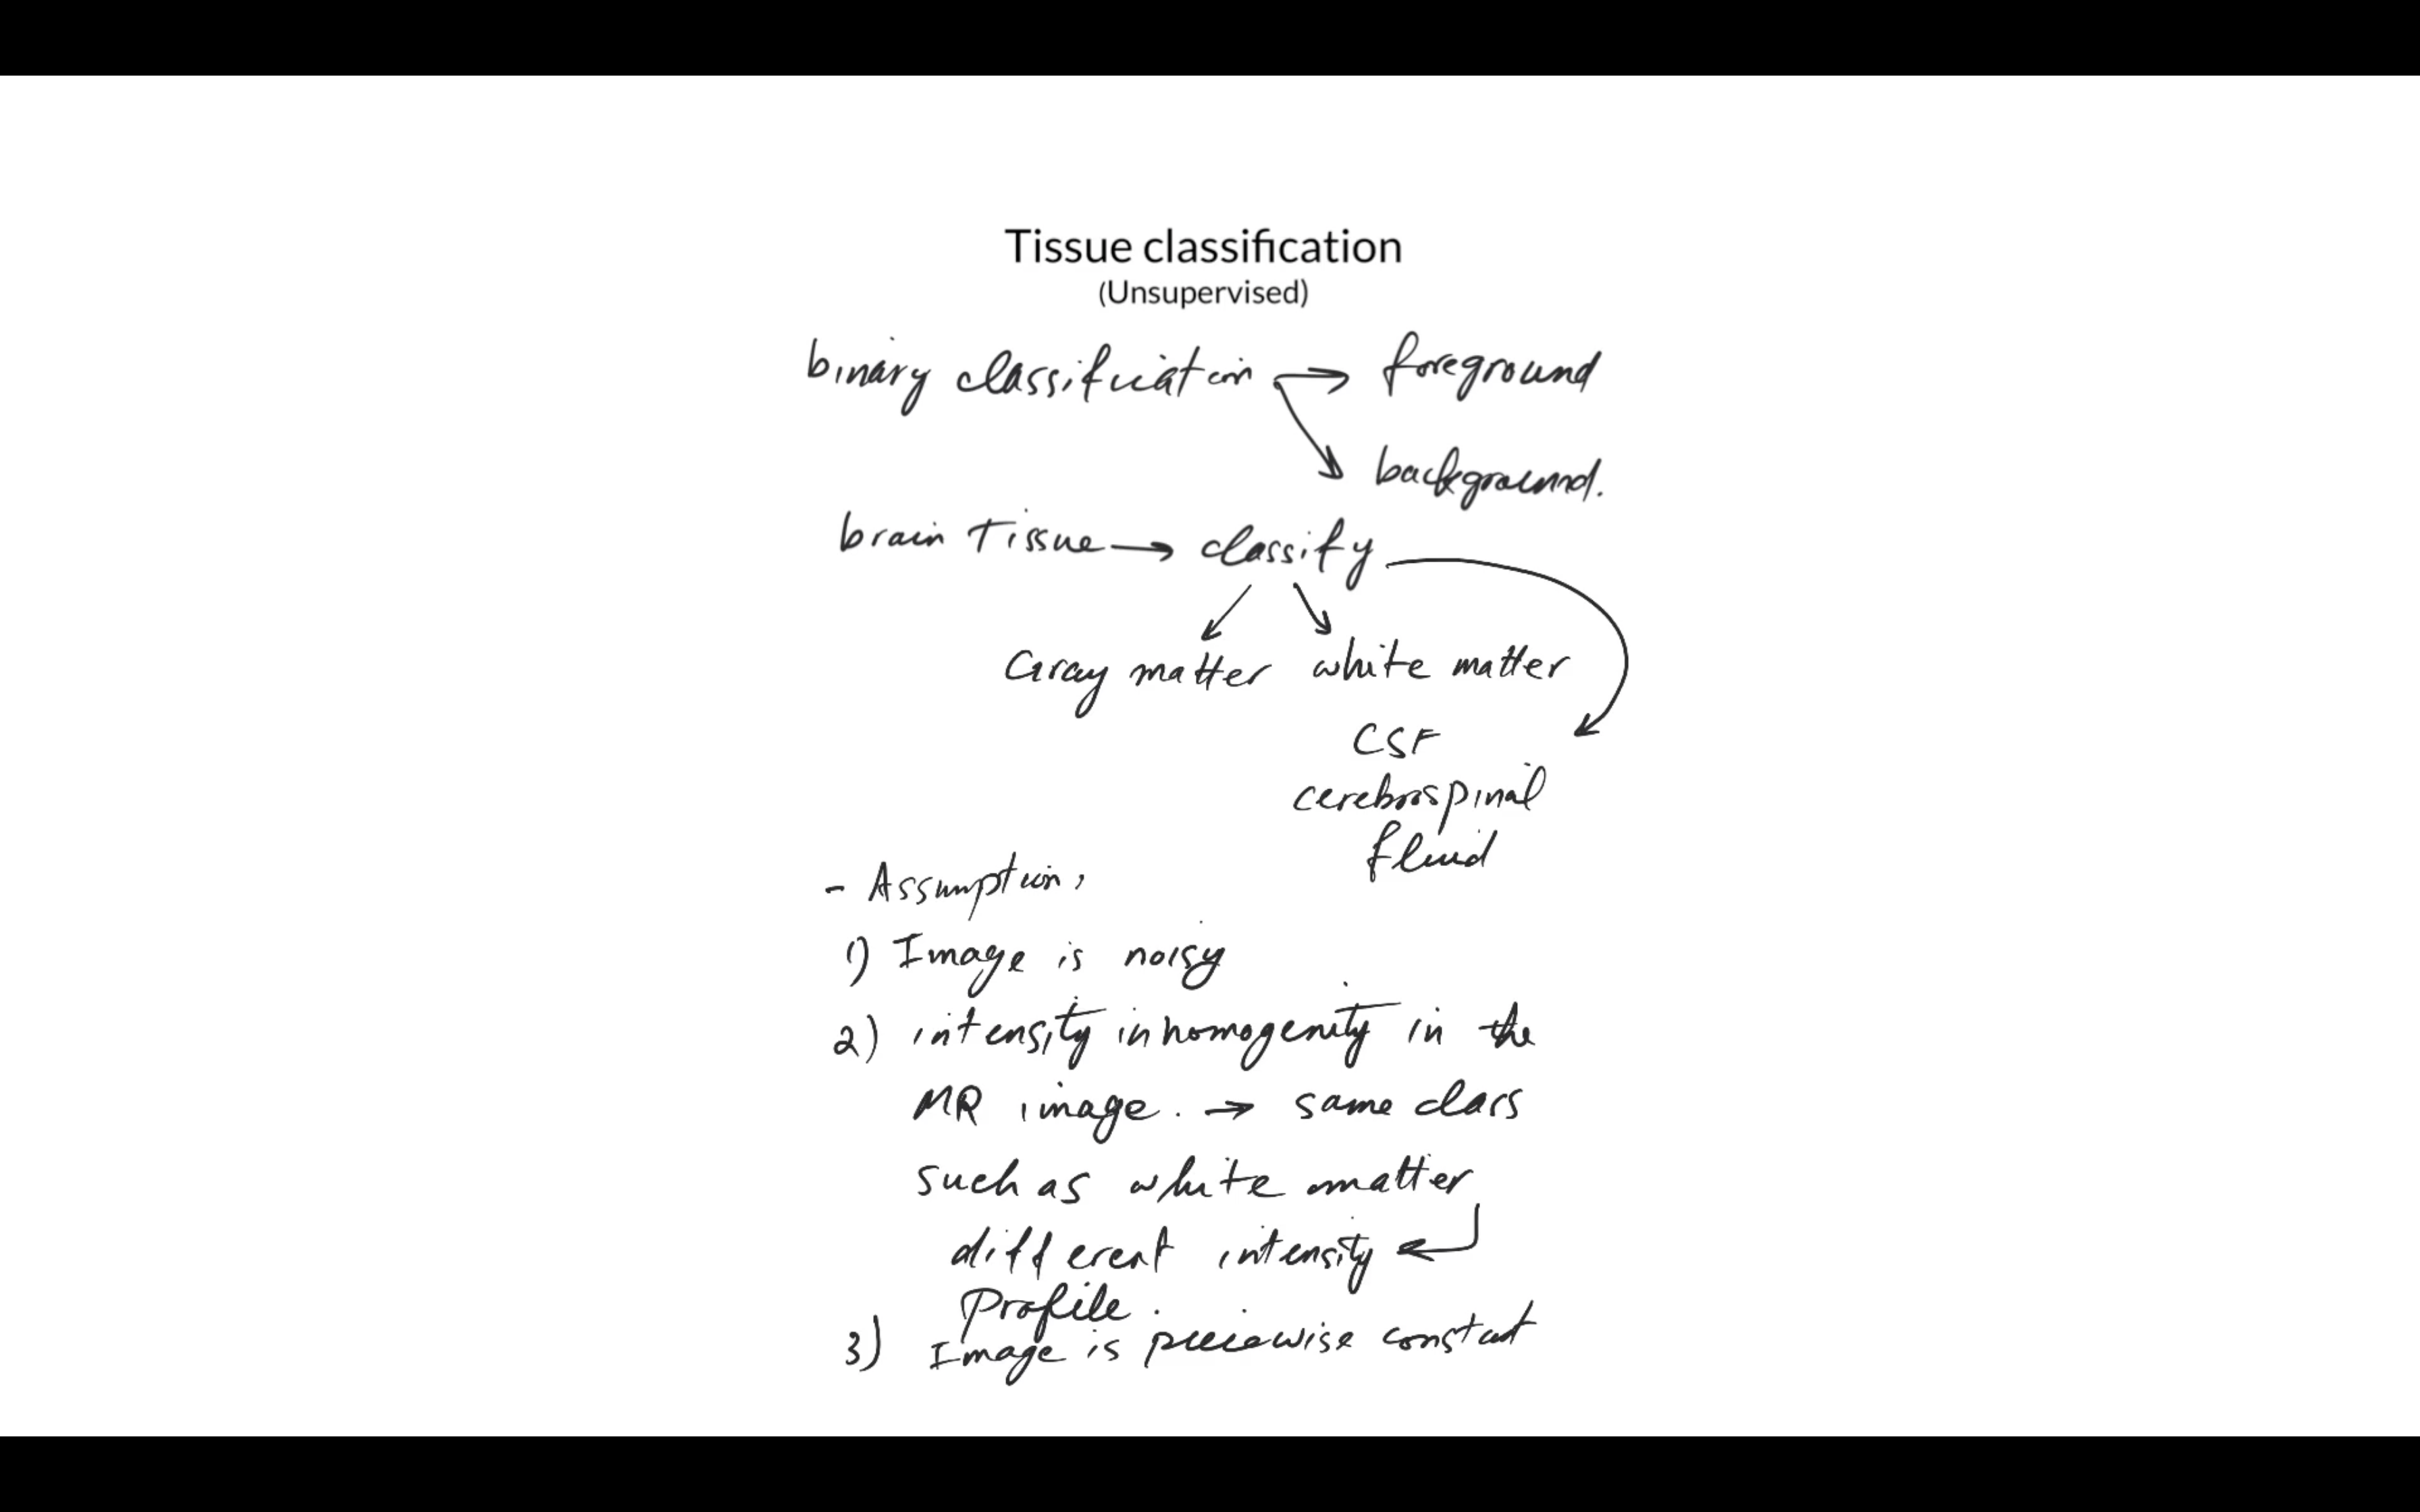 Tissue classification
(Unsupervised)
binary classification → foreground
background.
brain Tissue → classify
Gray matter white matter
CSF
cerebrospinal
fluid
- Assumption,
1) Image is noisy
2) intensity inhomogenity in the
MR image. → same class
such as white matter
different intensity ←
Profile.
3) Image is pieciewise constant